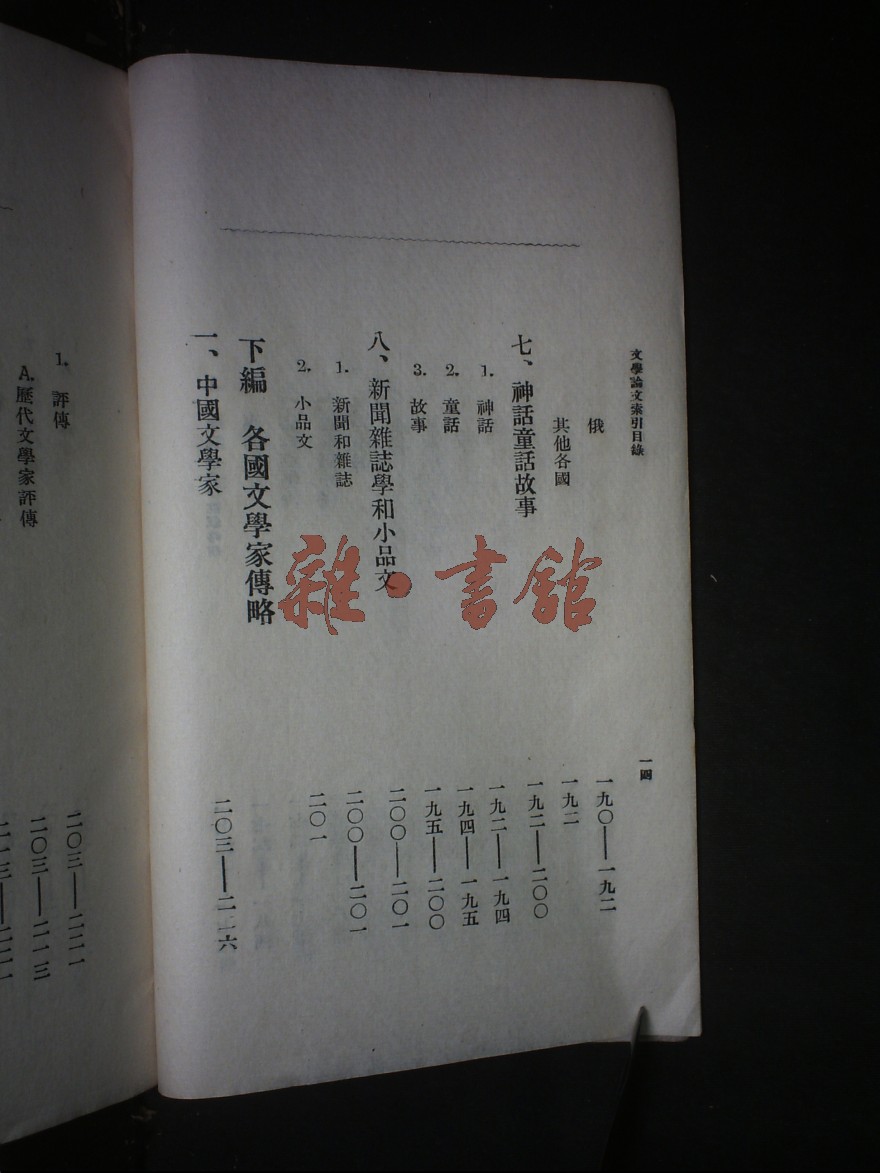 文學論文索引目錄
一四
俄 一九〇——一九二
其他各國 一九二
七、神話童話故事 一九二——二〇〇
1. 神話 一九二——一九四
2. 童話 一九四——一九五
3. 故事 一九五——二〇〇
八、新聞雜誌學和小品文 二〇〇——二〇一
1. 新聞和雜誌 二〇〇——二〇一
2. 小品文 二〇一
下編 各國文學家傳略
一、中國文學家 二〇三——二二六
雜·書館
1. 評傳 二〇三——二二一
A. 歷代文學家評傳 二〇三——二一三
二一三——二二一